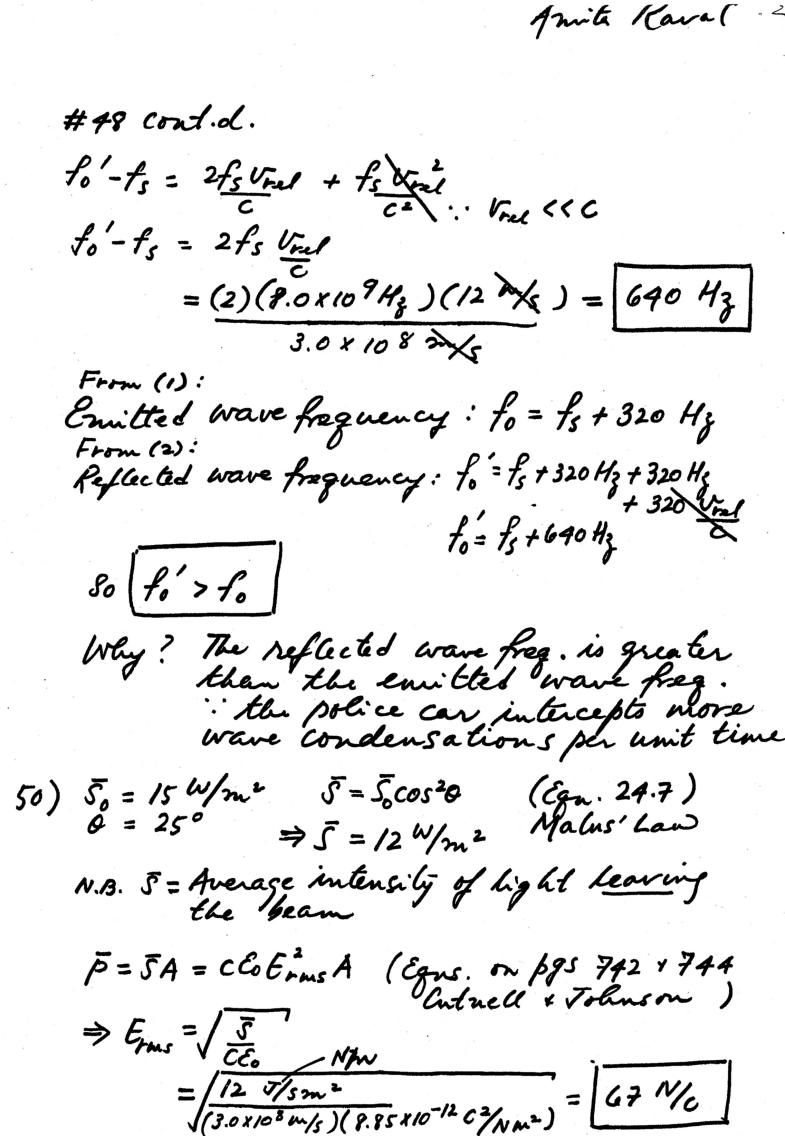 Amita Raval 2
#48 cont.d.
fo'-fs = 2fs Vrel/c + fs Vrel²/c² ∵ Vrel << c
fo'-fs = 2fs Vrel/c
= (2)(8.0x10⁹Hz)(12 m/s) / 3.0 x 10⁸ m/s = 640 Hz
From (1):
Emitted wave frequency : fo = fs + 320 Hz
From (2):
Reflected wave frequency: fo' = fs + 320 Hz + 320 Hz
+ 320 Vrel/c
fo' = fs + 640 Hz
So fo' > fo
Why? The reflected wave freq. is greater
than the emitted wave freq.
∵ the police car intercepts more
wave condensations per unit time
50) S̄o = 15 W/m² S̄ = S̄o cos²θ (Eqn. 24.7)
θ = 25° ⇒ S̄ = 12 W/m² Malus' Law
N.B. S̄ = Average intensity of light leaving
the beam
P̄ = S̄A = cε₀E²rms A (Eqns. on pgs 742 & 744
Cutnell & Johnson)
⇒ Erms = √(S̄/cε₀)
Nm
= √(12 J/sm² / (3.0x10⁸ m/s)(8.85x10⁻¹² C²/Nm²)) = 67 N/C